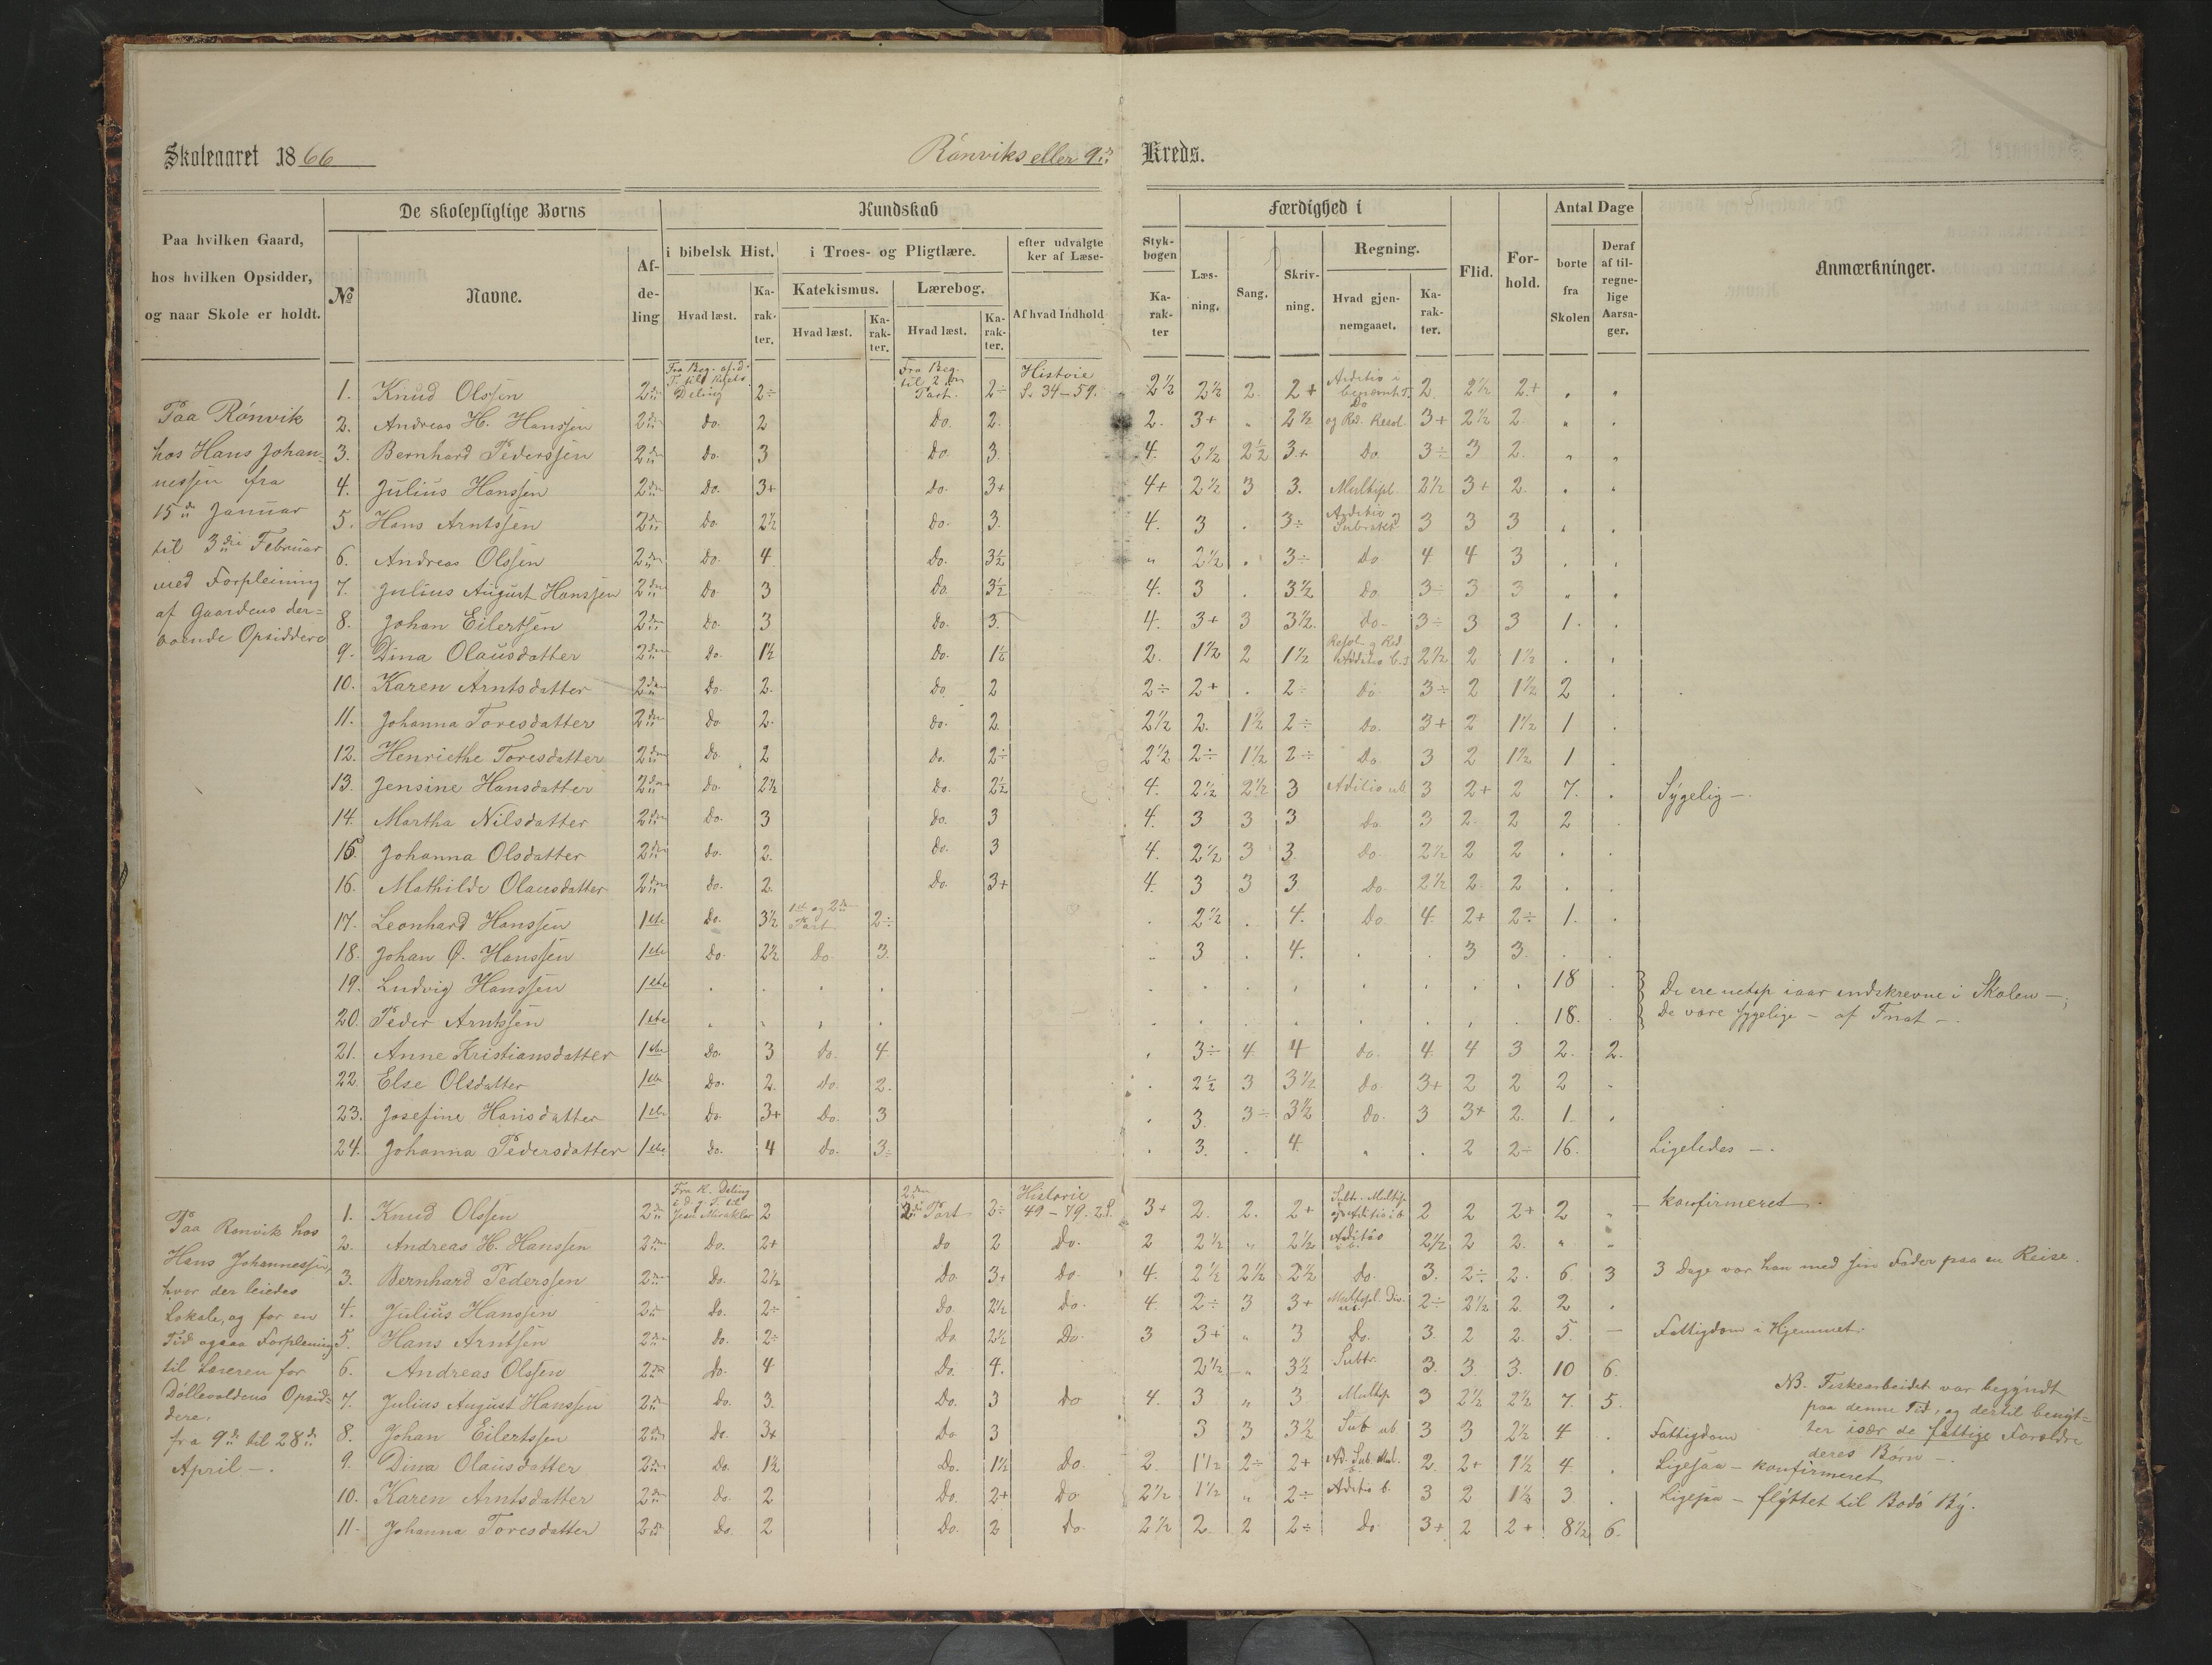 Skoleaaret 1866
Rønviks eller 9de Kreds.
Paa hvilken Gaard, hos hvilken Opsidder, og naar Skole er holdt.
De skolepligtige Børns
No
Navne.
Afdeling
Kundskab
i bibelsk Hist.
Hvad læst.
Karakter.
i Troes- og Pligtlære.
Katekismus.
Hvad læst.
Karakter.
Lærebog.
Hvad læst.
Karakter.
efter udvalgte
ker af Læse-
Af hvad Indhold
Stykbogen
Karakter
Færdighed i
Læsning.
Sang.
Skrivning.
Regning.
Hvad gjennemgaaet.
Karakter.
Flid.
Forhold.
Antal Dage
borte fra Skolen
Deraf af tilregnelige Aarsager.
Anmærkninger.
Paa Rønvik
hos Hans Johan-
nessen fra
15de Januar
til 3die Februar
med Forpleining
af Gaardens der-
boende Opsiddere
1. Knud Olssen 2den Deling 2÷ til 2den Part. 2÷ Historie S. 34-59. 2½ 2½ 2. 2+ 2 2½ 2+
2. Andreas H. Hanssen 2den Do. 2 Do. 2. 2. 3+ 2½ Do og Red. Resol. 3+ 2½ 2.
3. Bernhard Pederssen 2den Do. 3 Do. 3. 4. 2½ 2½ 3+ Do. 3÷ 3 2.
4. Julius Hanssen 2den Do. 3+ Do. 3+ 4+ 2½ 3 3. Multipl. 2½ 3+ 2.
5. Hans Arntssen 2den Do. 2½ Do. 3. 4. 3 3÷ Additio og Subrakt 3 3 3
6. Andreas Olssen 2den Do. 4 Do. 3½ " 2½ 3÷ Do 4 4 3
7. Julius August Hanssen 2den Do. 3 Do. 3½ 4. 3 3½ Do. 3÷ 3 3
8. Johan Eilertsen 2den Do. 3 Do. 3. 4. 3+ 3 3½ Do. 3÷ 3 3 1.
9. Dina Olausdatter 2den Do. 1½ Do. 1½ 2. 1½ 2 1½ Resol. og Red. 2½ 2 1½
10. Karen Arntsdatter 2den Do. 2. Do. 2 2÷ 2+ 2÷ Do 3÷ 2 1½ 2
11. Johanna Toresdatter 2den Do. 2. Do. 2. 2½ 2. 1½ 2÷ Do. 3+ 2 1½ 1
12. Henriethe Toresdatter 2den Do. 2 Do. 2÷ 2½ 2÷ 1½ 2÷ Do. 3 2 1½ 1
13. Jensine Hansdatter 2den Do. 2½ Do. 2½ 4. 2½ 2½ 3 Aditio ub 3 2+ 2 7. Sygelig -.
14. Martha Nilsdatter 2den Do. 3 Do. 3 4. 3 3 3 Do. 3 2. 2 2
15 Johanna Olsdatter 2den Do. 2. Do. 3 4. 2½ 3 3. Do. 2½ 2 2
16. Mathilde Olausdatter 2den Do. 2. Do. 3+ 4. 3 3 3. Do. 2½ 2 2
17. Leonhard Hanssen 1ste Do. 3½ 1ste og 2den Part 2÷ 2½ 4. Do. 4. 2+ 2÷ 1.
18. Johan Ø. Hanssen 1ste Do. 2½ Do 3. 3 4. 3 3.
19. Ludvig Hanssen 1ste 18 De ere netop iaar indskrevne i Skolen -;
20. Peder Arntssen 1ste 18. De vare sygelige - af Fnat -.
21. Anne Kristiansdatter 1ste Do. 3 Do. 4 3÷ 4 4 Do. 4. 4 3 2. 2.
22. Else Olsdatter 1ste Do. 2. Do. 2. 2½ 3 3½ Do. 3+ 2 2 2
23. Josefine Hansdatter 1ste Do. 3+ Do. 3 3. 3÷ 3½ Do. 3 3+ 2. 1.
24. Johanna Pedersdatter 1ste Do. 4 Do. 3÷ 3. 4. 2 2÷ 16. Ligeledes -.
Paa Rønvik hos
Hans Johannessen,
hvor der leiedes
Lokale, og for en
Tid ogsaa Forpleining
til Læreren for
Opsid-
dere.
fra 9de til 28de
April -.
1. Knud Olssen 2den Fra K. Deling i d. g. T. til Jesu Mirakler 2 2den Part 2÷ Historie 49-79. 2S. 3+ 2. 2. 2+ Subt. Multip. 2 2 2+ 2 konfirmeret.
2. Andreas H. Hanssen 2den Do. 2+ Do 2 Do. 2 2½ " 2½ 2½ 2 2. " "
3. Bernhard Pederssen 2den Do. 2½ Do. 3+ Do. 4. 2½ 2½ 2½ Do. 3. 2÷ 2. 6 3 3 Dage var han med sin Fader paa en Reise.
4. Julius Hanssen 2den Do. 2÷ Do. 2½ Do. 4. 2÷ 3 3+ Multipl. Div. 2÷ 2½ 2. 2
5. Hans Arntsen 2den Do. 2÷ Do. 2½ Do. 3 3+ " 3 Do. 3. 2 2. 5. - Fattigdom i Hjemmet.
6. Andreas Olssen 2den Do. 4 Do. 4. 2½ " 3½ Subtr. 3. 3. 3. 10 6.
7. Julius August Hanssen 2den Do. 3. Do. 3 Do 4. 3 " 3. Multip 3 2½ 2½ 7. 5.
8. Johan Eilertssen 2den Do. 3+ Do 3 3 3 3½ Sub ub 3 3 2½ 4 Fattigdom
9. Dina Olausdatter 2den Do. 1½ Do. 1½ Do. 2. 1½ 2÷ 2+ Ad. Sub. Mul. 2. 2+ 1½ 4 Ligesaa - konfirmeret
10. Karen Arntsdatter 2den Do. 2 Do. 2+ Do 2½ 1½ " 2÷ Aditio b. 3 2 1½ 3 Ligesaa - flyttet til Bodø By.
11. Johanna Toresdatter 2den Do. 2 Do. 2 Do. 2½ 2 2 2÷ Do 3+ 2 2+ 8½ 6.
NB. Fiskearbeidet var begyndt
paa denne Tid, og dertil benyt-
ter især de fattige Forældre
deres Børn -.